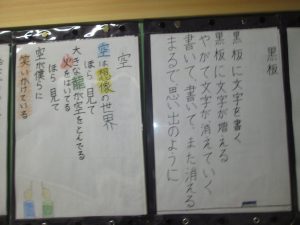 黒板
黒板に文字を書く
黒板に文字が増える
やがて文字が消えていく
書いて、書いて、また消える
まるで、思い出のように
空
空は想像の世界
ほら見て
大きな龍が空をとんでる
火をはいてる
ほら見て
空が僕らに
笑いかけている